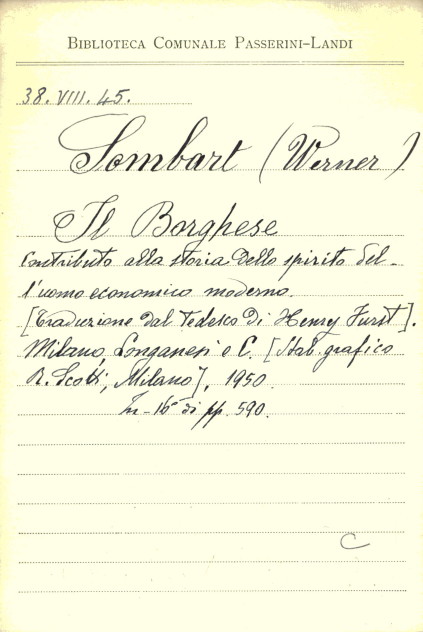 BIBLIOTECA COMUNALE PASSERINI-LANDI
38. VIII. 45.
Sombart (Werner)
Il Borghese
Contributo alla storia dello spirito del-
l'uomo economico moderno.
[Traduzione dal Tedesco di Henry Furst].
Milano, Longanesi e C. [Stab. grafico
R. Scotti, Milano], 1950.
In-16° di pp. 590.
C